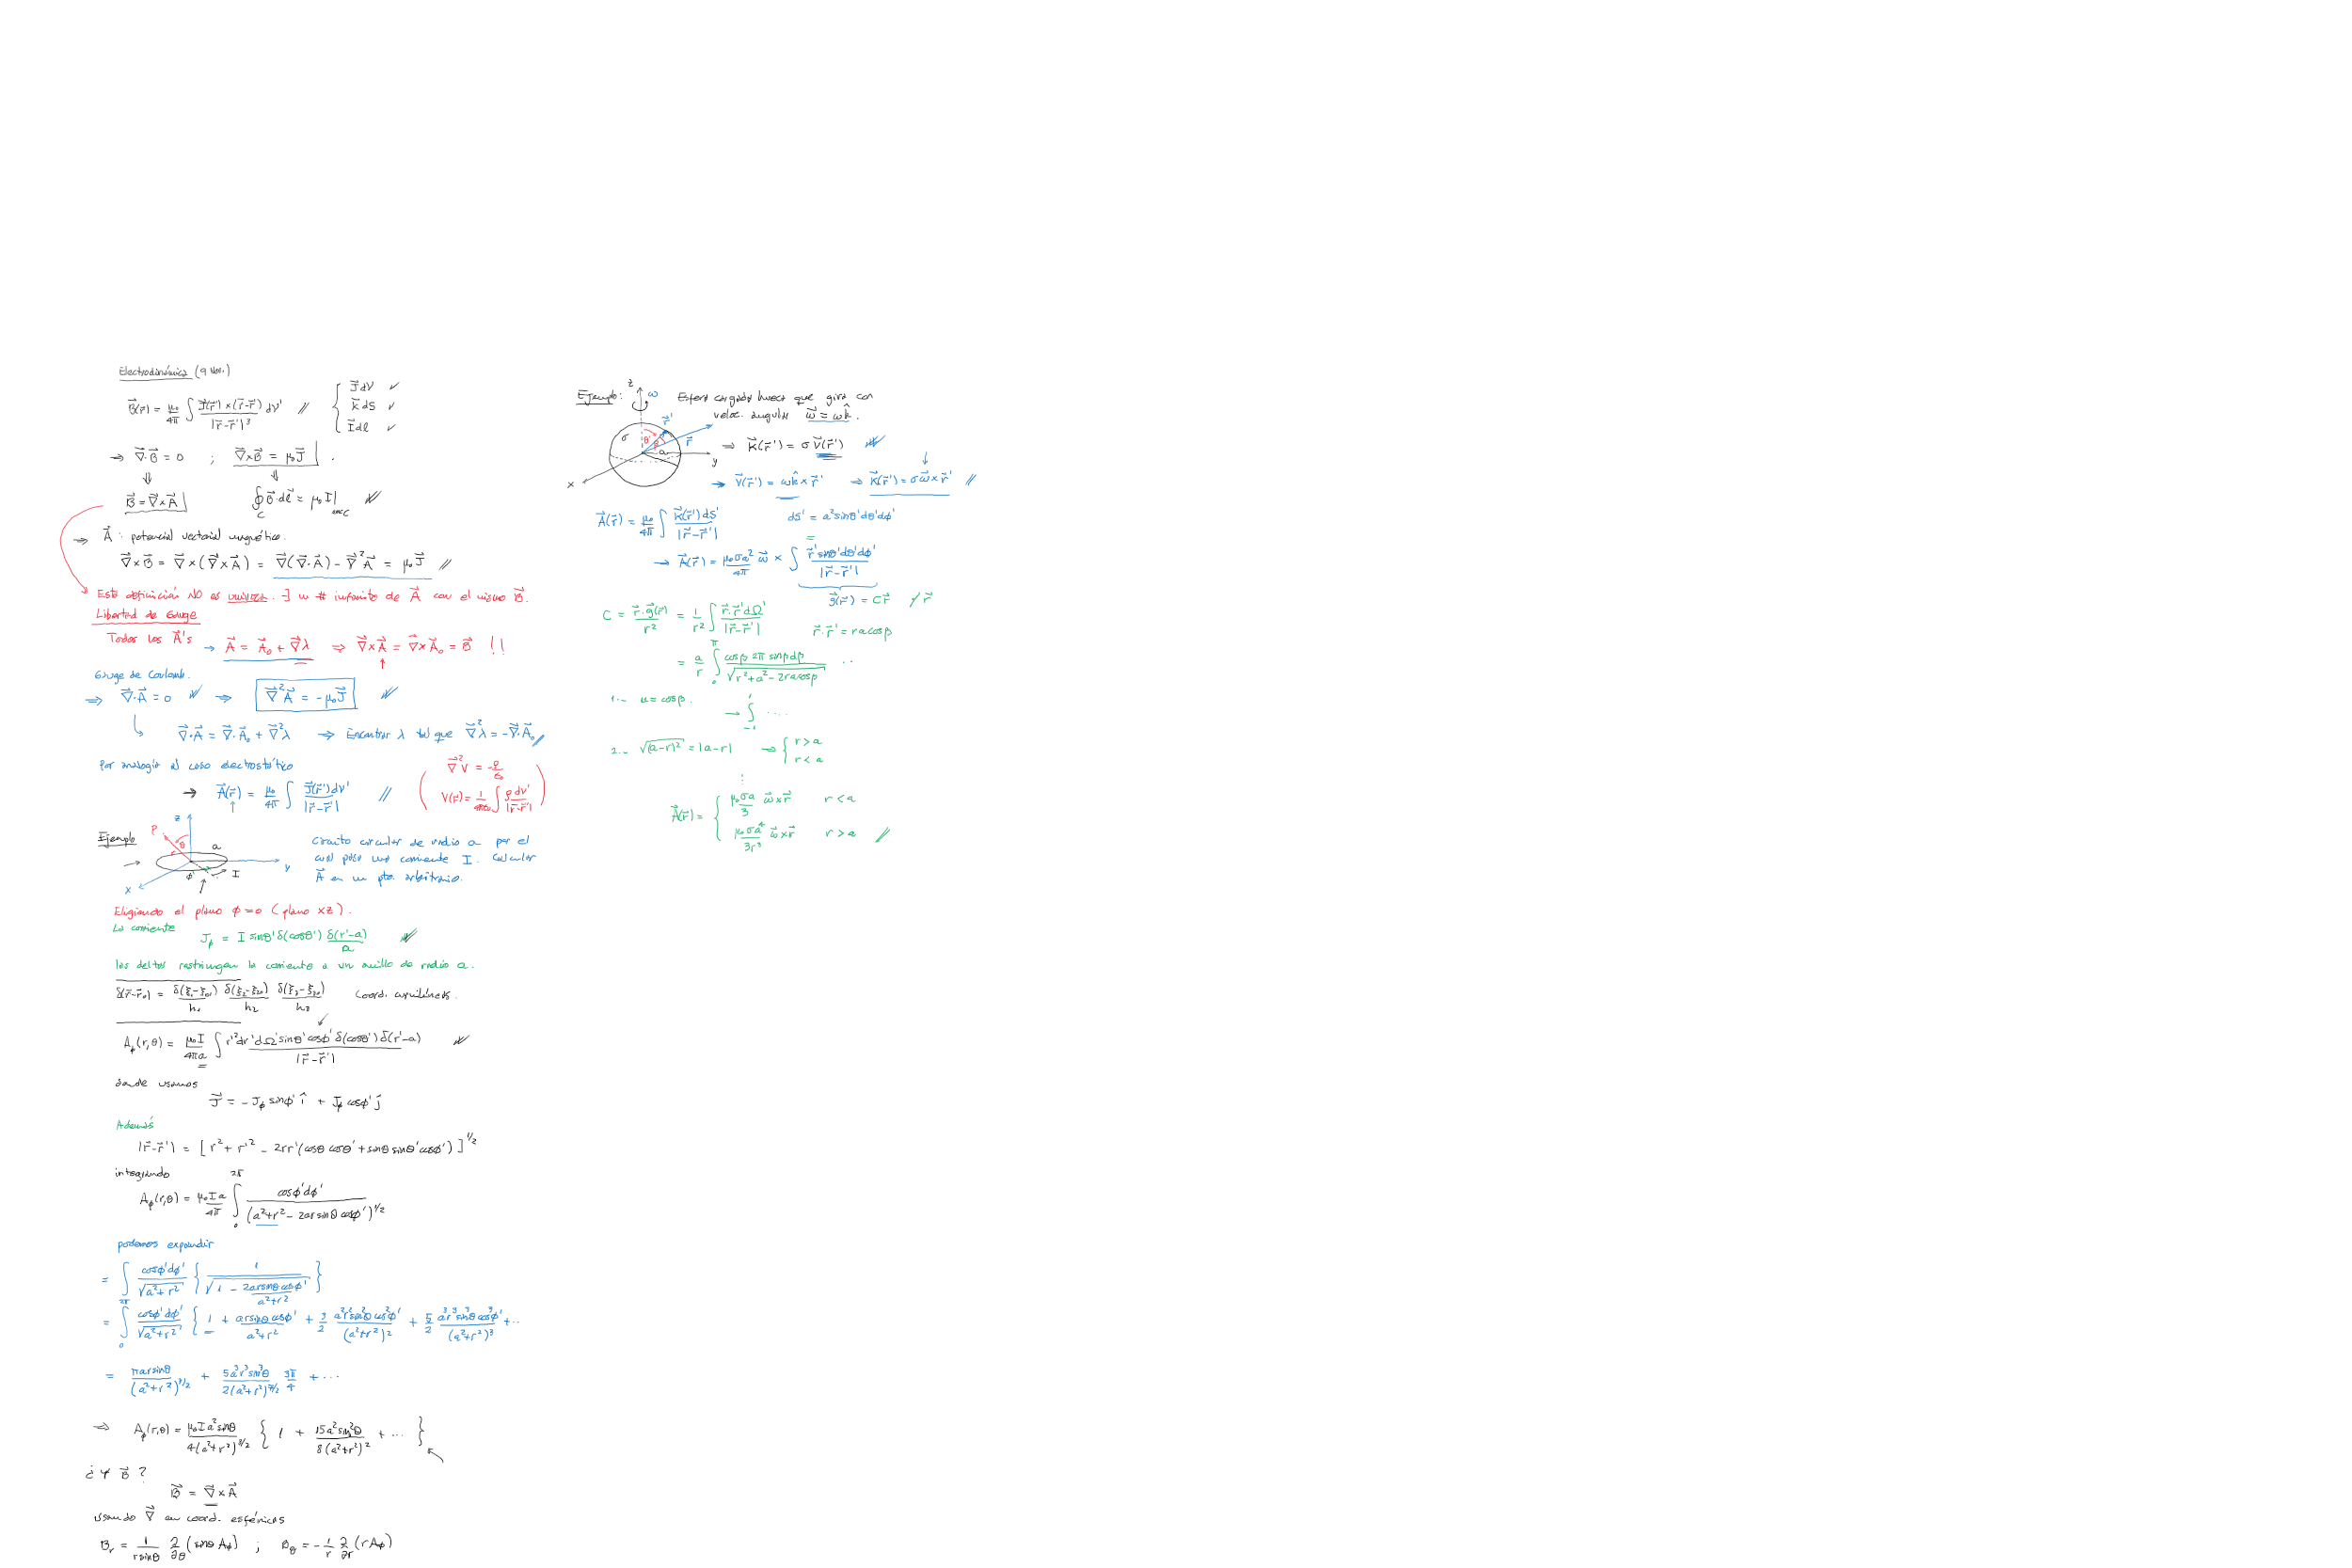 Electrodinámica (9 Nov.)
B⃗(r) = μ₀/4π ∫ J⃗(r⃗')×(r⃗-r⃗')/|r⃗-r⃗'|³ dV' // { J⃗dV ✓
K⃗dS ✓
I⃗dl ✓
→ ∇⃗·B⃗ = 0 ; ∇⃗×B⃗ = μ₀J⃗ .
⇓ ⇓
B⃗ = ∇⃗×A⃗ ∮_C B⃗·dl⃗ = μ₀I|enc C //
⇒ A⃗ : potencial vectorial magnético.
∇⃗×B⃗ = ∇⃗×(∇⃗×A⃗) = ∇⃗(∇⃗·A⃗) - ∇⃗²A⃗ = μ₀J⃗ //
Esta definición NO es unívoca. ∃ un # infinito de A⃗ con el mismo B⃗.
Libertad de Gauge
Todos los A⃗'s → A⃗ = A⃗₀ + ∇⃗λ ⇒ ∇⃗×A⃗ = ∇⃗×A⃗₀ = B⃗ !!
Gauge de Coulomb.
⇒ ∇⃗·A⃗ = 0 // ⇒ ∇⃗²A⃗ = -μ₀J⃗ //
↳ ∇⃗·A⃗ = ∇⃗·A⃗₀ + ∇⃗²λ ⇒ Encontrar λ tal que ∇⃗²λ = -∇⃗·A⃗₀ //
Por analogía al caso electrostático
→ A⃗(r⃗) = μ₀/4π ∫ J⃗(r⃗')dV'/|r⃗-r⃗'| //
( ∇⃗²V = -ρ/ε₀
V(r⃗) = 1/4πε₀ ∫ ρ dV'/|r⃗-r⃗'| )
Ejemplo
z P θ a y x φ' I
Circuito circular de radio a por el
cual pasa una corriente I. Calcular
A⃗ en un pto. arbitrario.
Eligiendo el plano φ=0 (plano xz).
La corriente
J_φ = I sinθ' δ(cosθ') δ(r'-a)/a //
las deltas restringen la corriente a un anillo de radio a.
δ(r⃗-r⃗₀) = δ(ξ₁-ξ₀₁)/h₁ δ(ξ₂-ξ₂₀)/h₂ δ(ξ₃-ξ₃₀)/h₃ Coord. curvilíneas.
A_φ(r,θ) = μ₀I/4πa ∫ r'²dr'dΩ'sinθ'cosφ'δ(cosθ')δ(r'-a)/|r⃗-r⃗'| //
donde usamos
J⃗ = -J_φ sinφ' î + J_φ cosφ' ĵ
Además
|r⃗-r⃗'| = [r² + r'² - 2rr'(cosθ cosθ' + sinθ sinθ' cosφ')]^1/2
integrando
A_φ(r,θ) = μ₀Ia/4π ∫₀^2π cosφ'dφ'/(a²+r²-2ar sinθ cosφ')^1/2
podemos expandir
= ∫ cosφ'dφ'/√(a²+r²) { 1/√(1 - 2ar sinθ cosφ'/(a²+r²)) }
= ∫₀^2π cosφ'dφ'/√(a²+r²) { 1 + ar sinθ cosφ'/(a²+r²) + 3/2 a²r²sin²θ cos²φ'/(a²+r²)² + 5/2 a³r³sin³θ cos³φ'/(a²+r²)³ + ..
= πar sinθ/(a²+r²)^3/2 + 5a³r³sin³θ/2(a²+r²)^7/2 3π/4 + ...
⇒ A_φ(r,θ) = μ₀Ia²sinθ/4(a²+r²)^3/2 { 1 + 15a²sin²θ/8(a²+r²)² + ... }
¿Y B⃗?
B⃗ = ∇⃗×A⃗
usando ∇⃗ en coord. esféricas
B_r = 1/(r sinθ) ∂/∂θ (sinθ A_φ) ; B_θ = -1/r ∂/∂r (rA_φ)
Ejemplo:
z ω r⃗' r⃗ σ θ' β a y x
Esfera cargada hueca que gira con
veloc. angular ω⃗ = ωk̂.
⇒ K⃗(r⃗') = σ V⃗(r⃗') //
→ V⃗(r⃗') = ωk̂×r⃗' ⇒ K⃗(r⃗') = σω⃗×r⃗' //
A⃗(r⃗) = μ₀/4π ∫ K⃗(r⃗')dS'/|r⃗-r⃗'| dS' = a²sinθ'dθ'dφ'
→ A⃗(r⃗) = μ₀σa²/4π ω⃗ × ∫ r⃗'sinθ'dθ'dφ'/|r⃗-r⃗'|
g⃗(r⃗) = C r⃗ /·r⃗
C = r⃗·g⃗(r⃗)/r² = 1/r² ∫ r⃗·r⃗'dΩ'/|r⃗-r⃗'| r⃗·r⃗' = ra cosβ
= a/r ∫₀^π cosβ 2π sinβdβ/√(r²+a²-2ra cosβ) ..
1.- u = cosβ. → ∫₋₁^1 ....
2.- √(a-r)² = |a-r| → { r > a
r < a
⋮
A⃗(r⃗) = { μ₀σa/3 ω⃗×r⃗ r < a
μ₀σa⁴/3r³ ω⃗×r⃗ r > a //